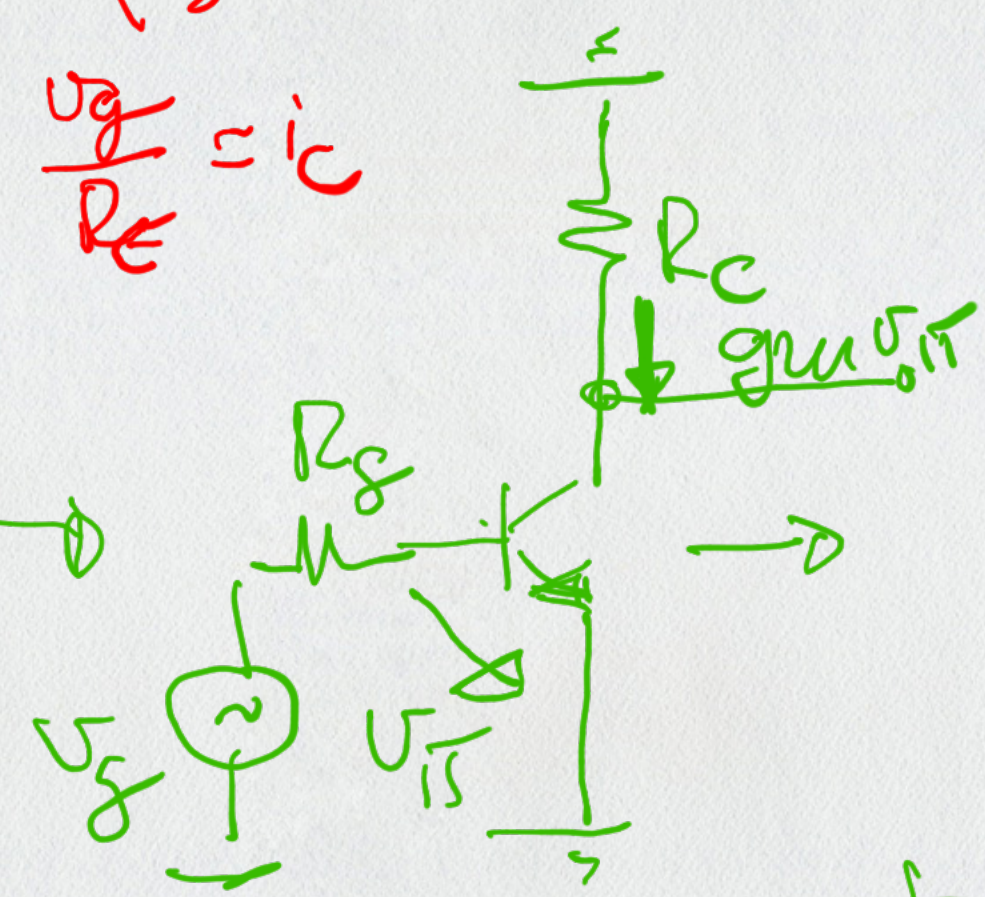 vg/RE = ic
RC
gm vπ
Rg
vg
vπ